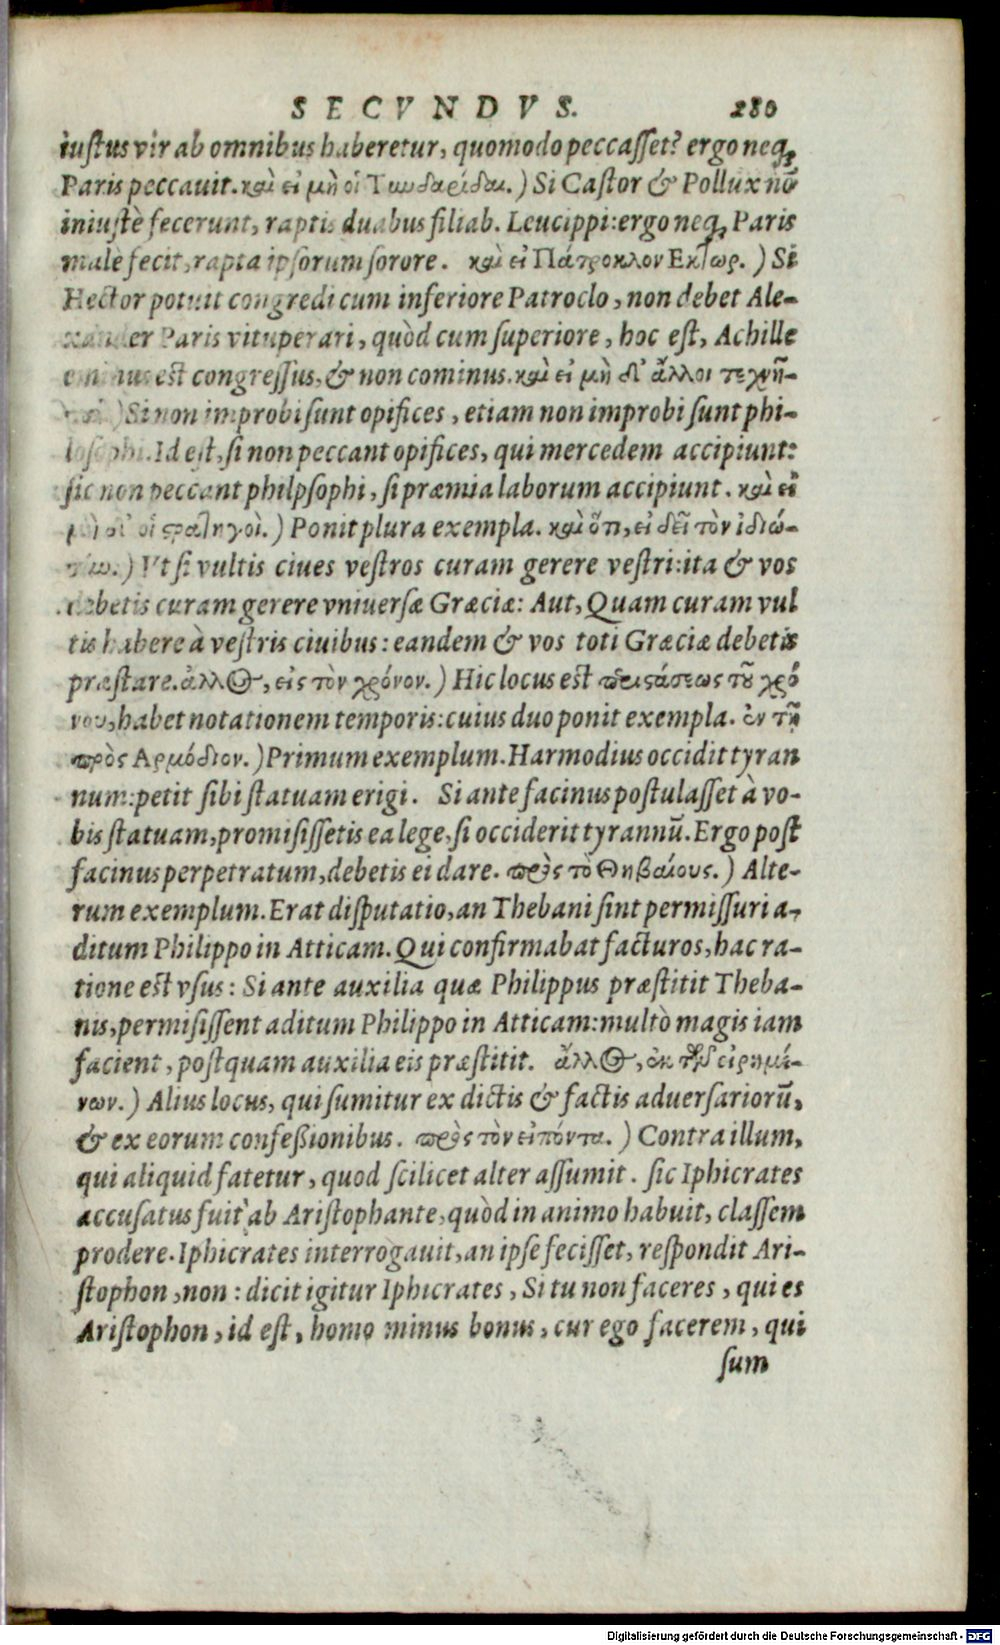 SECVNDVS. 280
iustus vir ab omnibus haberetur, quomodo peccasset? ergo neq;
Paris peccavit. καὶ εἰ μὴ οἱ Τυνδαρίδαι.) Si Castor & Pollux nō
iniustè fecerunt, raptis duabus filiab. Leucippi: ergo neq; Paris
malè fecit, rapta ipsorum sorore. καὶ εἰ Πάτροκλον Εκτωρ.) Si
Hector potuit congredi cum inferiore Patroclo, non debet Ale-
xander Paris vituperari, quòd cum superiore, hoc est, Achille
eminus est congressus, & non cominus. καὶ εἰ μὴ δ' ἄλλοι τεχνῖ-
) Si non improbi sunt opifices, etiam non improbi sunt phi-
losophi. Id est, si non peccant opifices, qui mercedem accipiunt:
sic non peccant philpsophi, si præmia laborum accipiunt. καὶ εἰ
μὴ δ' οἱ στρατηγοὶ.) Ponit plura exempla. καὶ ὅτι, εἰ δεῖ τὸν ἰδιώ-
την.) Vt si vultis ciues vestros curam gerere vestri: ita & vos
debetis curam gerere vniuersæ Græciæ: Aut, Quam curam vul
tis habere à vestris ciuibus: eandem & vos toti Græciæ debetis
præstare. ἄλλος, εἰς τὸν χρόνον.) Hic locus est περιστάσεως τοῦ χρό
νου, habet notationem temporis: cuius duo ponit exempla. ἐν τῇ
πρὸς Αρμόδιον.) Primum exemplum. Harmodius occidit tyran
num: petit sibi statuam erigi. Si ante facinus postulasset à vo-
bis statuam, promisissetis ea lege, si occiderit tyrannū. Ergo post
facinus perpetratum, debetis ei dare. πρὸς τὸ Θηβαίους.) Alte-
rum exemplum. Erat disputatio, an Thebani sint permissuri a-
ditum Philippo in Atticam. Qui confirmabat facturos, hac ra-
tione est vsus: Si ante auxilia quæ Philippus præstitit Theba-
nis, permisissent aditum Philippo in Atticam: multò magis iam
facient, postquam auxilia eis præstitit. ἄλλος, ἐκ τῶν εἰρημέ-
νων.) Alius locus, qui sumitur ex dictis & factis aduersariorū,
& ex eorum confeßionibus. πρὸς τὸν εἰπόντα.) Contra illum,
qui aliquid fatetur, quod scilicet alter assumit. sic Iphicrates
accusatus fuit ab Aristophante, quòd in animo habuit, classem
prodere. Iphicrates interrogauit, an ipse fecisset, respondit Ari-
stophon, non: dicit igitur Iphicrates, Si tu non faceres, qui es
Aristophon, id est, homo minus bonus, cur ego facerem, qui
sum
Digitalisierung gefördert durch die Deutsche Forschungsgemeinschaft - DFG